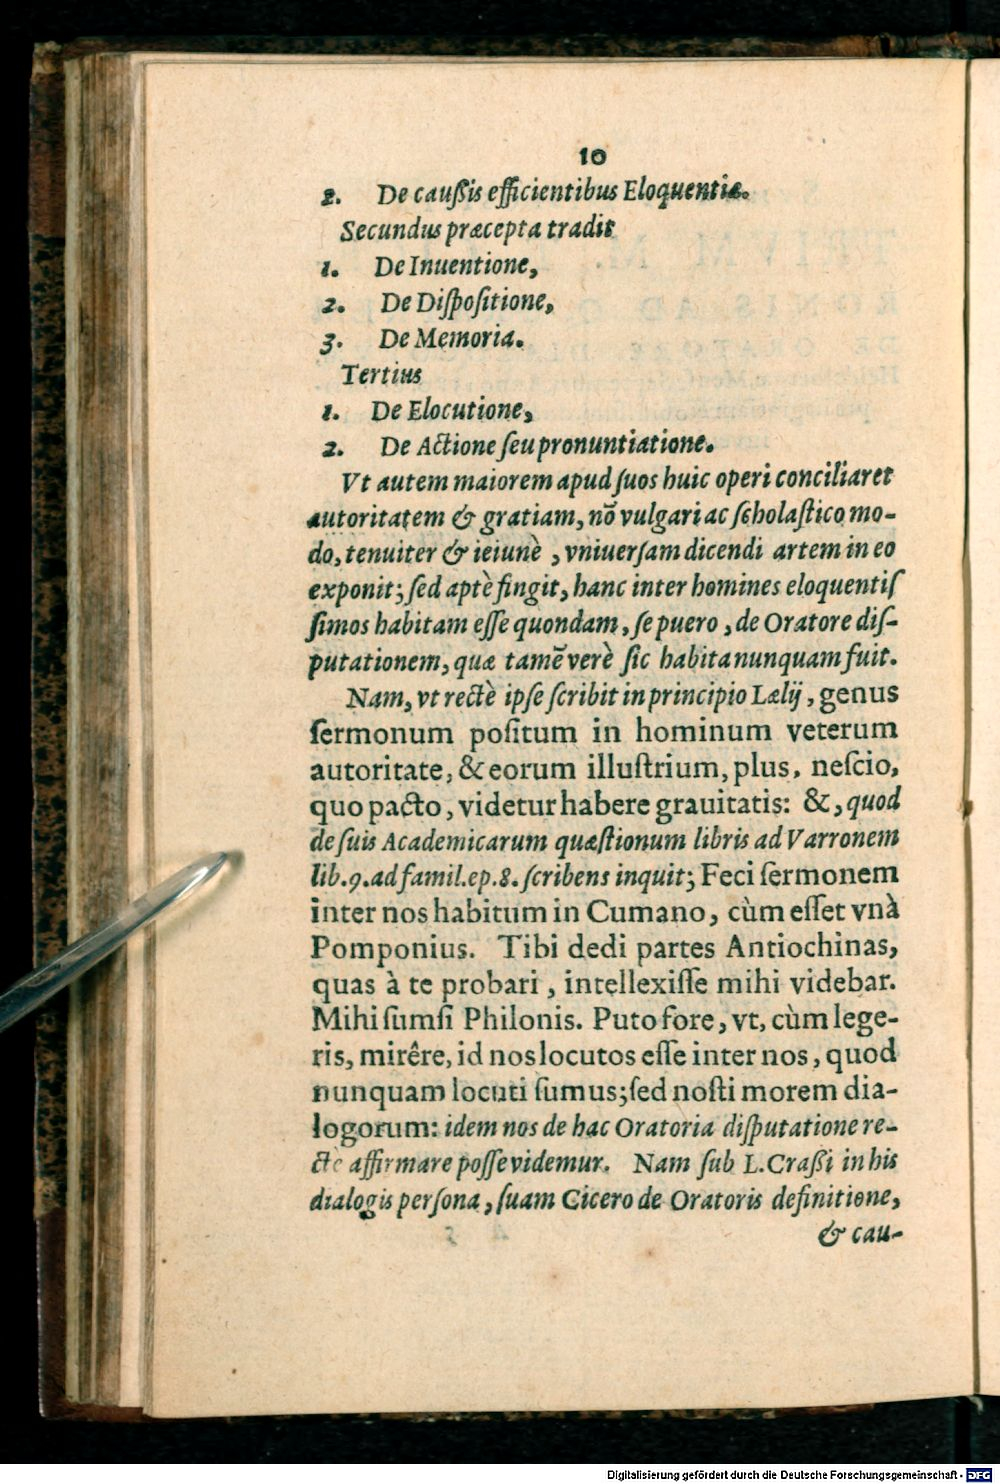 10
2. De caußis efficientibus Eloquentiæ.
Secundus præcepta tradit
1. De Inuentione,
2. De Diſpoſitione,
3. De Memoria.
Tertius
1. De Elocutione,
2. De Actione ſeu pronuntiatione.
Vt autem maiorem apud ſuos huic operi conciliaret
autoritatem & gratiam, nō vulgari ac ſcholaſtico mo-
do, tenuiter & ieiunè, vniuerſam dicendi artem in eo
exponit; ſed aptè fingit, hanc inter homines eloquentiſ
ſimos habitam eſſe quondam, ſe puero, de Oratore diſ-
putationem, quæ tamē verè ſic habita nunquam fuit.
Nam, vt rectè ipſe ſcribit in principio Lælij, genus
ſermonum poſitum in hominum veterum
autoritate, & eorum illuſtrium, plus, neſcio,
quo pacto, videtur habere grauitatis: &, quod
de ſuis Academicarum quæſtionum libris ad Varronem
lib.9.ad famil.ep.8. ſcribens inquit; Feci ſermonem
inter nos habitum in Cumano, cùm eſſet vnà
Pomponius. Tibi dedi partes Antiochinas,
quas à te probari, intellexiſſe mihi videbar.
Mihi ſumſi Philonis. Puto fore, vt, cùm lege-
ris, mirêre, id nos locutos eſſe inter nos, quod
nunquam locuti ſumus; ſed noſti morem dia-
logorum: idem nos de hac Oratoria diſputatione re-
ctè affirmare poſſe videmur. Nam ſub L. Craßi in his
dialogis perſona, ſuam Cicero de Oratoris definitione,
& cau-
Digitalisierung gefördert durch die Deutsche Forschungsgemeinschaft - DFG